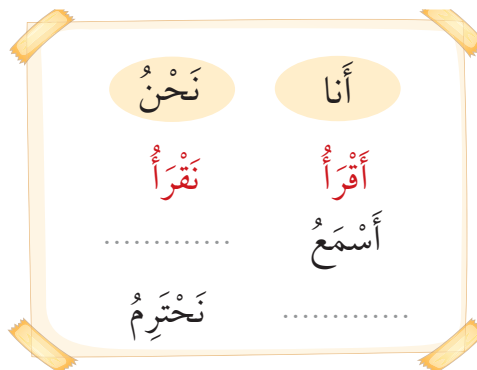 أَنا نَحْنُ
أَقْرَأُ نَقْرَأُ
أَسْمَعُ .............
............. نَحْتَرِمُ